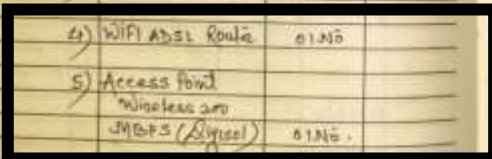 4) WIFI ADSL Route 01 No
5) Access Point
Wireless 300
MBPS (Digisol) 01 No.